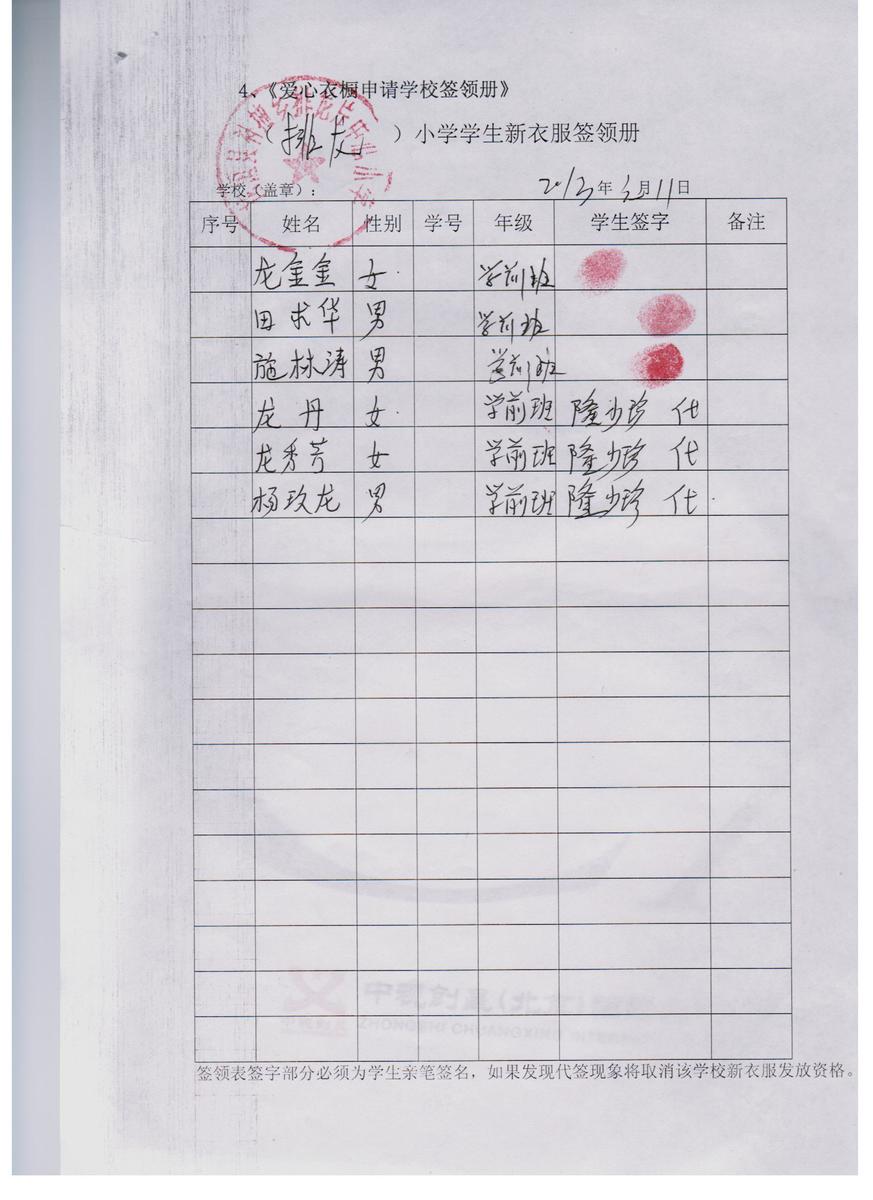 4、《爱心衣橱申请学校签领册》
（排友）小学学生新衣服签领册
学校（盖章）： 2013年3月11日
序号 姓名 性别 学号 年级 学生签字 备注
龙金金 女 学前班
田求华 男 学前班
施林涛 男 学前班
龙丹 女 学前班 隆少珍 代
龙秀芳 女 学前班 隆少珍 代
杨玫龙 男 学前班 隆少珍 代
中视创星(北京)
ZHONGSHI CHUANGXING INTERN
签领表签字部分必须为学生亲笔签名，如果发现代签现象将取消该学校新衣服发放资格。